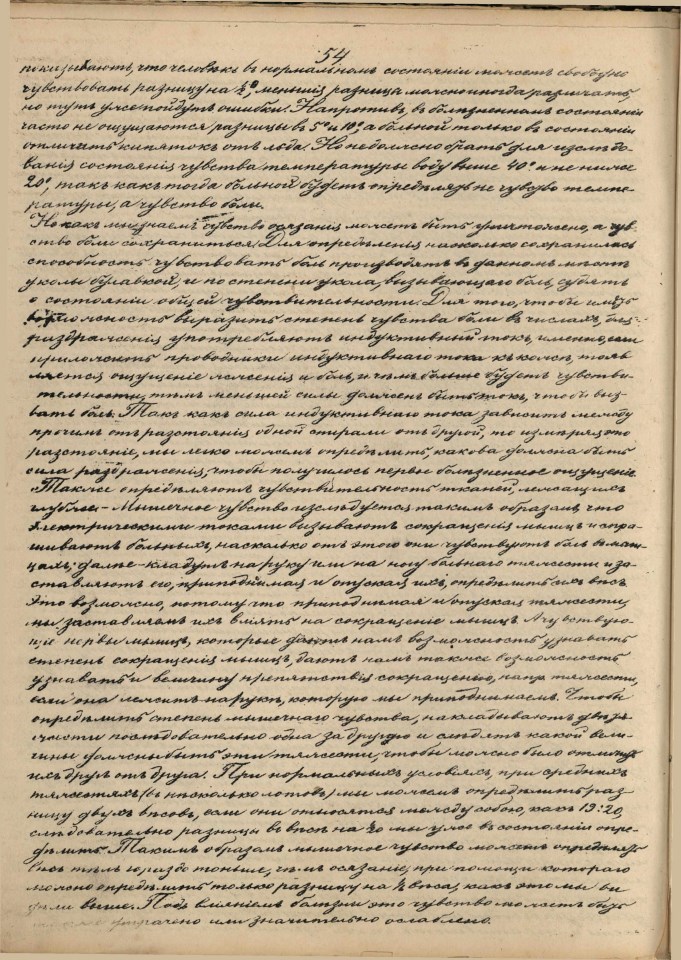 54
показываютъ, что человѣкъ въ нормальномъ состояніи можетъ свободно
чувствовать разницу на ½°, меньшія разница можно иногда различать,
но тутъ уже пойдутъ ошибки. Напротивъ, въ болѣзненномъ состояніи
часто не ощущаются разницы въ 5° и 10°, а больной только въ состояніи
отличить кипятокъ отъ льда. Но не должно брать для изслѣдо-
ванія состоянія чувства температуры воду выше 40° и не ниже
20°, такъ какъ тогда больной будетъ опредѣлять не чувство темпе-
ратуры, а чувство боли.
Но какъ мы знаемъ чувство осязанія можетъ быть уничтожено, а чув-
ство боли сохраниться. Для опредѣленія насколько сохранилась
способность чувствовать боль производятъ въ данномъ мѣстѣ
уколы булавкой, и по степени укола, вызывающаго боль, судятъ
о состояніи общей чувствительности. Для того, чтобы имѣть
возможность выразить степень чувства боли въ числахъ, для
раздраженія употребляютъ индуктивный токъ, именно, если
приложить проводники индуктивнаго тока къ кожѣ, появ
ляется ощущеніе жженія и боль, и чѣмъ больше будетъ чувстви-
тельность, тѣмъ меньшей силы долженъ быть токъ, чтобы выз-
вать боль. Такъ какъ сила индуктивнаго тока зависитъ между
прочимъ отъ разстоянія одной спирали отъ другой, то измѣряя это
разстояніе, мы легко можемъ опредѣлить, какова должна быть
сила раздраженія, чтобы получилось первое болѣзненное ощущеніе.
Также опредѣляютъ чувствительность тканей, лежащихъ
глубже. — Мышечное чувство изслѣдуется такимъ образомъ, что
электрическими токами вызываютъ сокращенія мышцъ и спра-
шиваютъ больныхъ, насколько отъ этого они чувствуютъ боль въ мыш-
цахъ; далѣе кладутъ на руку или на ногу больнаго тяжести и за-
ставляютъ его, приподнимая и опуская ихъ, опредѣлить ихъ вѣсъ
Это возможно, потому что приподнимая и опуская тяжести,
мы заставляемъ ихъ вліять на сокращеніе мышцъ. Чувствую-
щіе нервы мышцъ, которые даютъ намъ возможность узнавать
степень сокращенія мышцъ, даютъ намъ также возможность
узнавать и величину препятствія сокращенію, напр. тяжести,
если она лежитъ на рукѣ, которую мы приподнимаемъ. Чтобы
опредѣлить степень мышечнаго чувства, накладываютъ двѣ тя-
жести послѣдовательно одна за другою и слѣдятъ какой вели-
чины должны быть эти тяжести, чтобы можно было отличить
ихъ другъ отъ друга. При нормальныхъ условіяхъ, при среднихъ
тяжестяхъ (въ нѣсколько лотовъ) мы можемъ опредѣлить раз-
ницу двухъ вѣсовъ, если они относятся между собою, какъ 19:20,
слѣдовательно разницы въ вѣсѣ на 1/20 мы уже въ состояніи опре-
дѣлить. Такимъ образомъ мышечное чувство можетъ опредѣлять
вѣсъ тѣлъ гораздо тоньше, чѣмъ осязаніе, при помощи котораго
можно опредѣлить только разницу на ⅓ вѣса, какъ это мы ви
дѣли выше. Подъ вліяніемъ болѣзни это чувство можетъ быть
утрачено или значительно ослаблено.